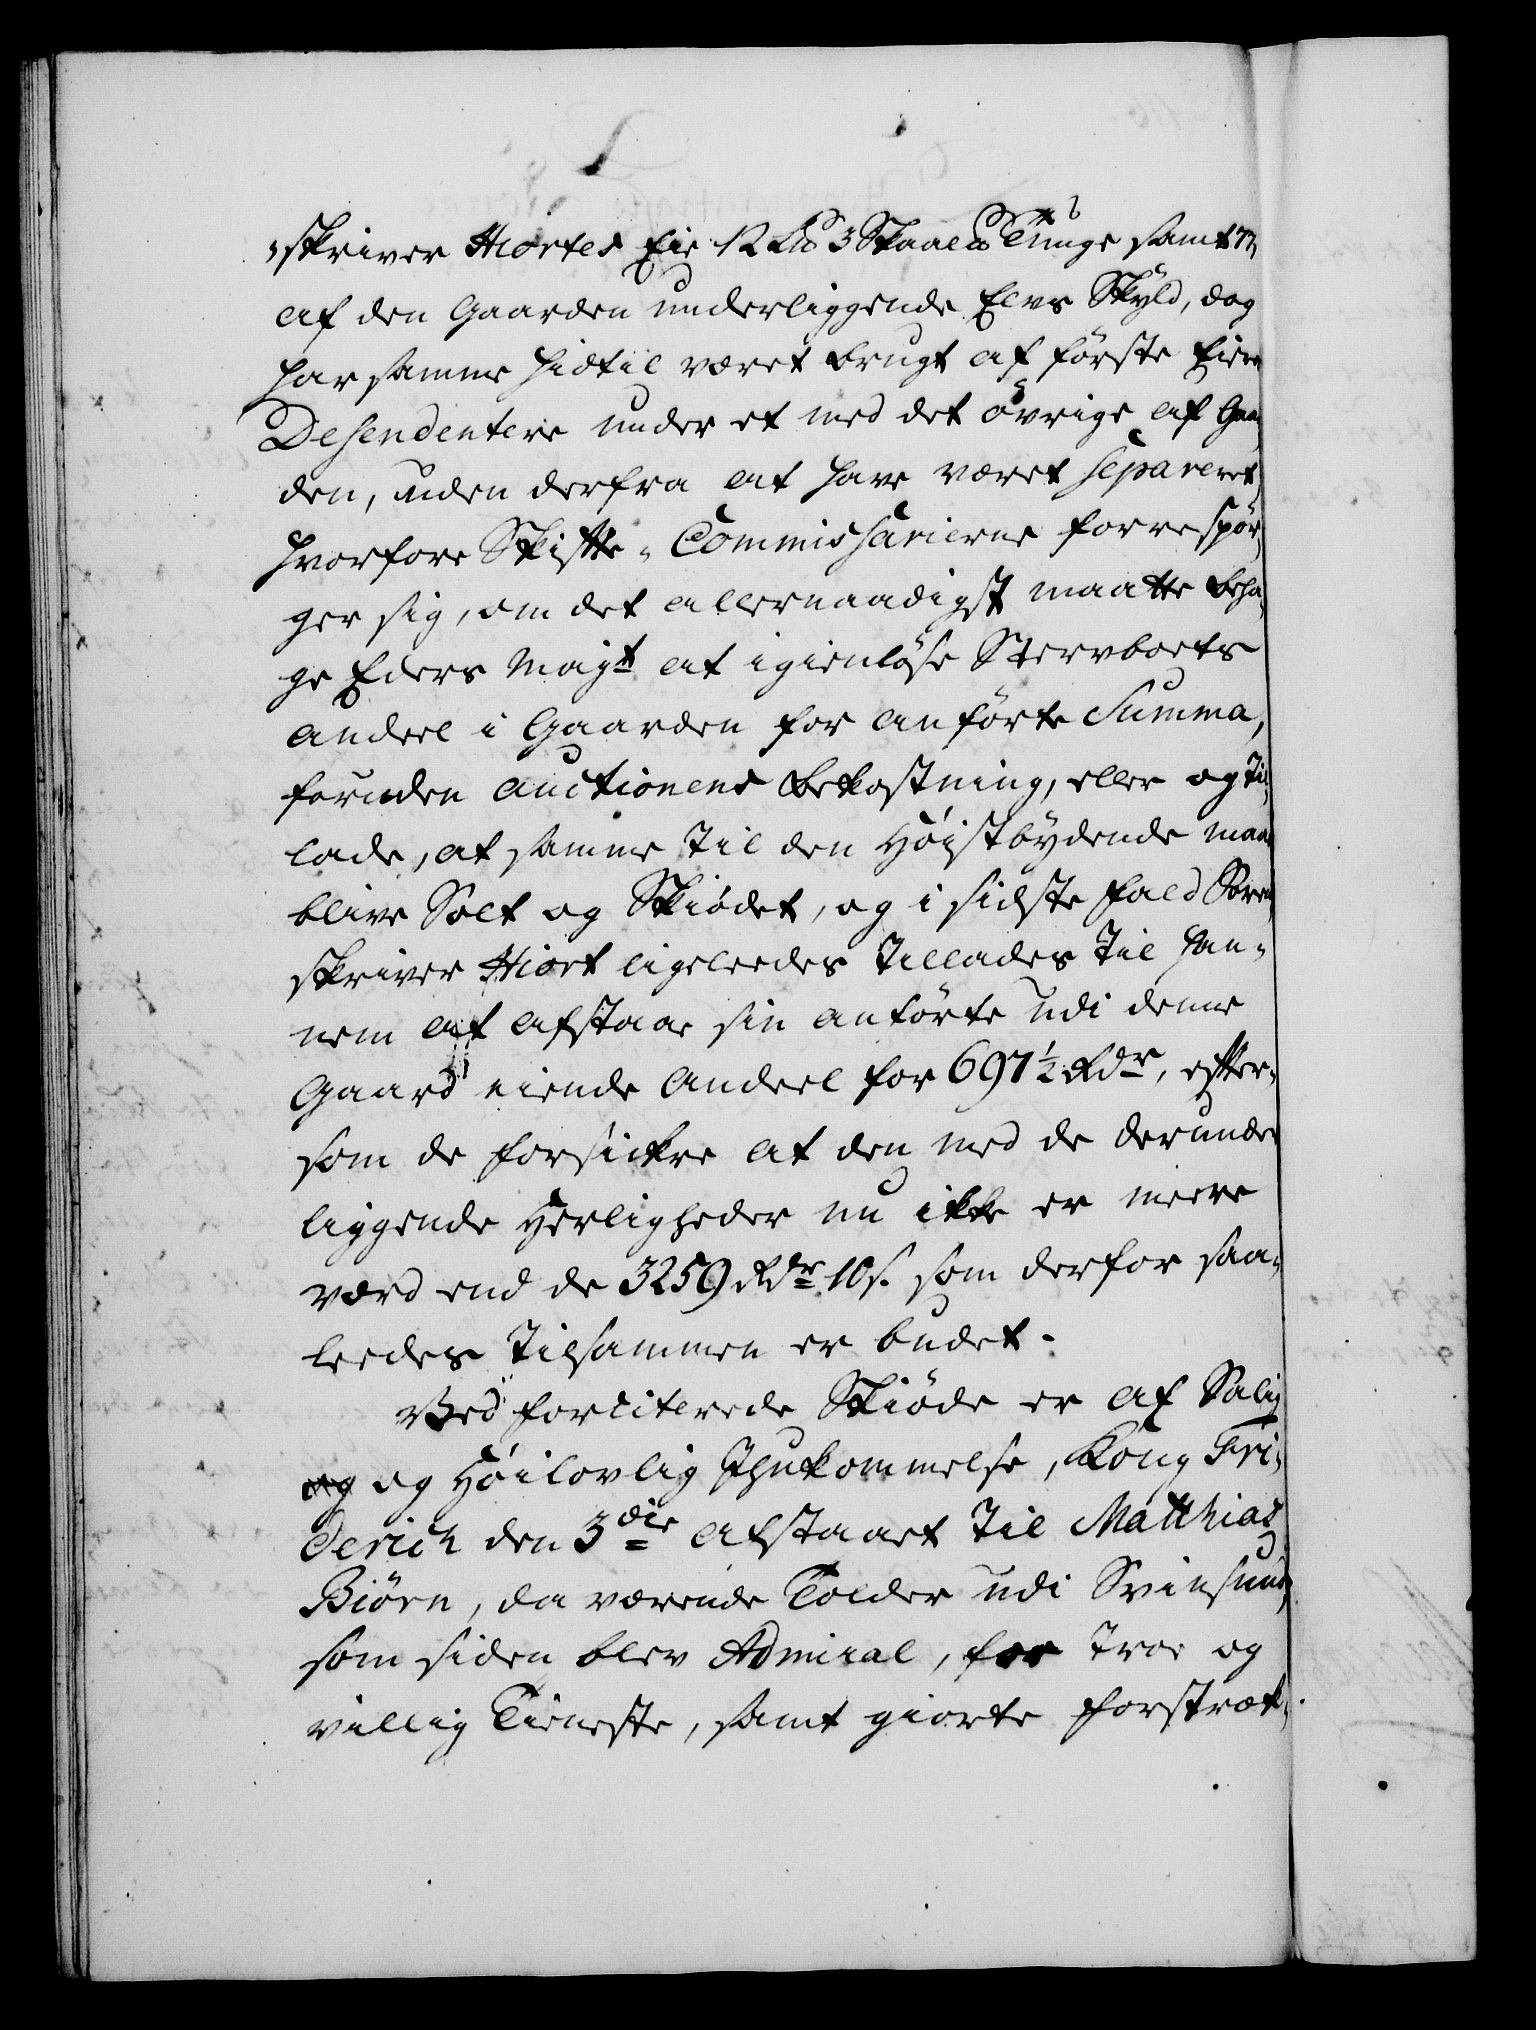 skriver Hiortes Eie 12 Lb 3 Skaalb Tunge samt
af den Gaarden underliggende Elvs Skyld, dog
har samme hidtil været brugt af förste Eiere
Desendentere under et med det övrige af Gaar,
den, uden derfra at have været separeret,
hvorfore Skifte-Commissarierne forrespör,
ger sig, om det allernaadigst maatte beha,
ge Eders Majt at igienlöse Stervboets
andeel i Gaarden for anförte Summa,
foruden auctionens Bekostning, eller og til,
lade, at samme til den Höistbydende maa
blive Solt og Skiödet, og i sidste fald Soren,
skriver Hiort ligeledes tillades til han,
nem at afstaae sin anförte udi denne
Gaard eiende Andeel for 697½ Rdr, efter,
som de forsikre at den med de derunder
liggende Herligheder nu ikke er meere
værd end de 3259 Rdr 10 s. som derfor saa,
leedes tilsammen er budet.
Ved forciterede Skiöde er af Salig
og og Höilovlig Ihukommelse, Kong Fri,
derich den 3die afstaaet til Matthias
Biörn, da værende Tolder udi Svinsund,
som siden blev Admiral, for troe og
villig Tieneste, samt giorte forstræk,